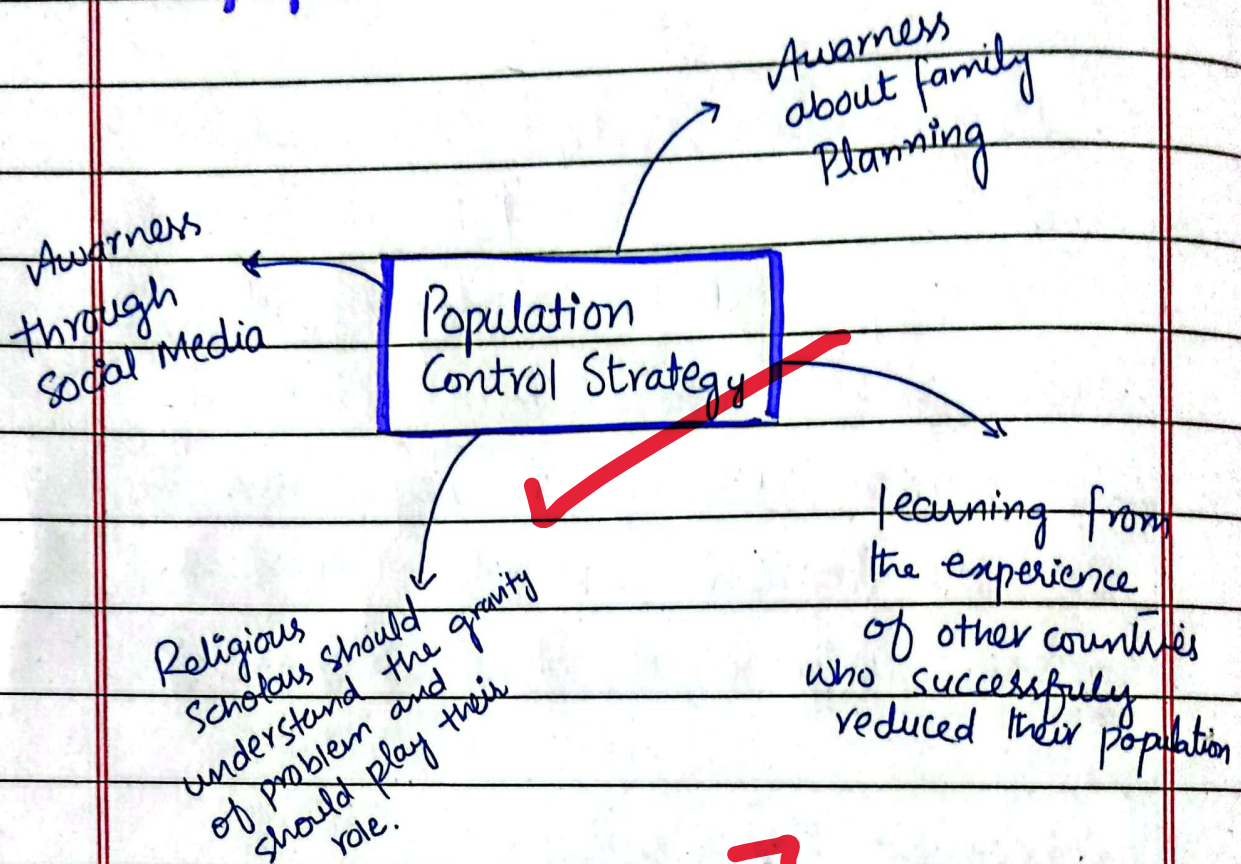 Awarness
about family
Planning
Awarness
through
Social Media
Population
Control Strategy
learning from
the experience
of other countries
who successfuly
reduced their population
Religious
Scholars should
understand the gravity
of problem and
should play their
role.